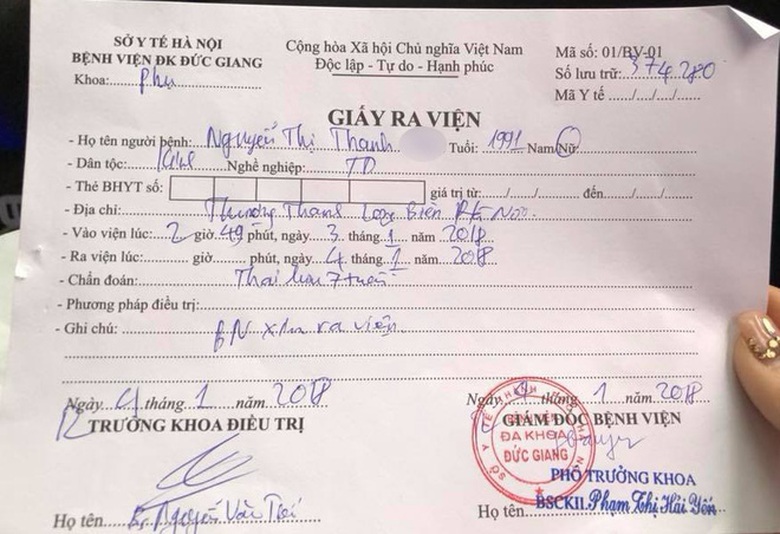 SỞ Y TẾ HÀ NỘI
BỆNH VIỆN ĐK ĐỨC GIANG
Khoa: phụ
Cộng hòa Xã hội Chủ nghĩa Việt Nam
Độc lập - Tự do - Hạnh phúc
Mã số: 01/BV-01
Số lưu trữ: 374280
Mã Y tế ....../....../......
GIẤY RA VIỆN
- Họ tên người bệnh: Nguyễn Thị Thanh Tuổi: 1991 Nam/Nữ:
- Dân tộc: Kinh Nghề nghiệp: TD
- Thẻ BHYT số: giá trị từ:....../....../...... đến....../....../......
- Địa chỉ: Thượng Thanh Long Biên Hà Nội
- Vào viện lúc: 2 giờ 49 phút, ngày 3 tháng 1 năm 2018
- Ra viện lúc: ........ giờ ...... phút, ngày 4 tháng 1 năm 2018
- Chẩn đoán: Thai lưu 7 tuần
- Phương pháp điều trị:
- Ghi chú: BN xin ra viện
Ngày 4 tháng 1 năm 2018
TRƯỞNG KHOA ĐIỀU TRỊ
Họ tên Bs Nguyễn Văn
Ngày 4 tháng 1 năm 2018
GIÁM ĐỐC BỆNH VIỆN
BỆNH VIỆN
ĐA KHOA
ĐỨC GIANG
SỞ Y TẾ THÀNH PHỐ HÀ NỘI
PHÓ TRƯỞNG KHOA
Họ tên BSCKII. Phạm Thị Hải Yến